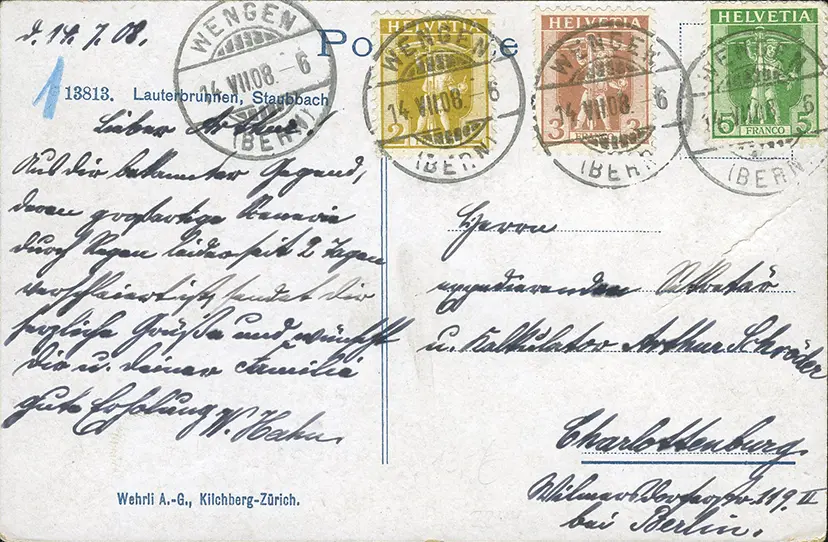 d. 14. 7. 08.
WENGEN
14.VII.08.–6
(BERN)
HELVETIA
2
WENGEN
14.VII.08.–6
(BERN)
HELVETIA
3 FRANCO 3
WENGEN
14.VII.08.–6
(BERN)
HELVETIA
5 FRANCO 5
WENGEN
14.VII.08.–6
(BERN)
1
13813. Lauterbrunnen, Staubbach
Lieber Arthur.
Aus dir bekannter Gegend,
deren großartige Scenerie
durch Regen leider seit 2 Tagen
verschleiert ist, sendet dir
herzliche Grüße und wünscht
dir u. deiner Familie
gute Erholung W. Hahn.
Wehrli A.-G., Kilchberg-Zürich.
Herrn
expedierenden Sekretär
u. Kalkulator Arthur Schröder
Charlottenburg.
Wilmersdorferstr. 119 II
bei Berlin.